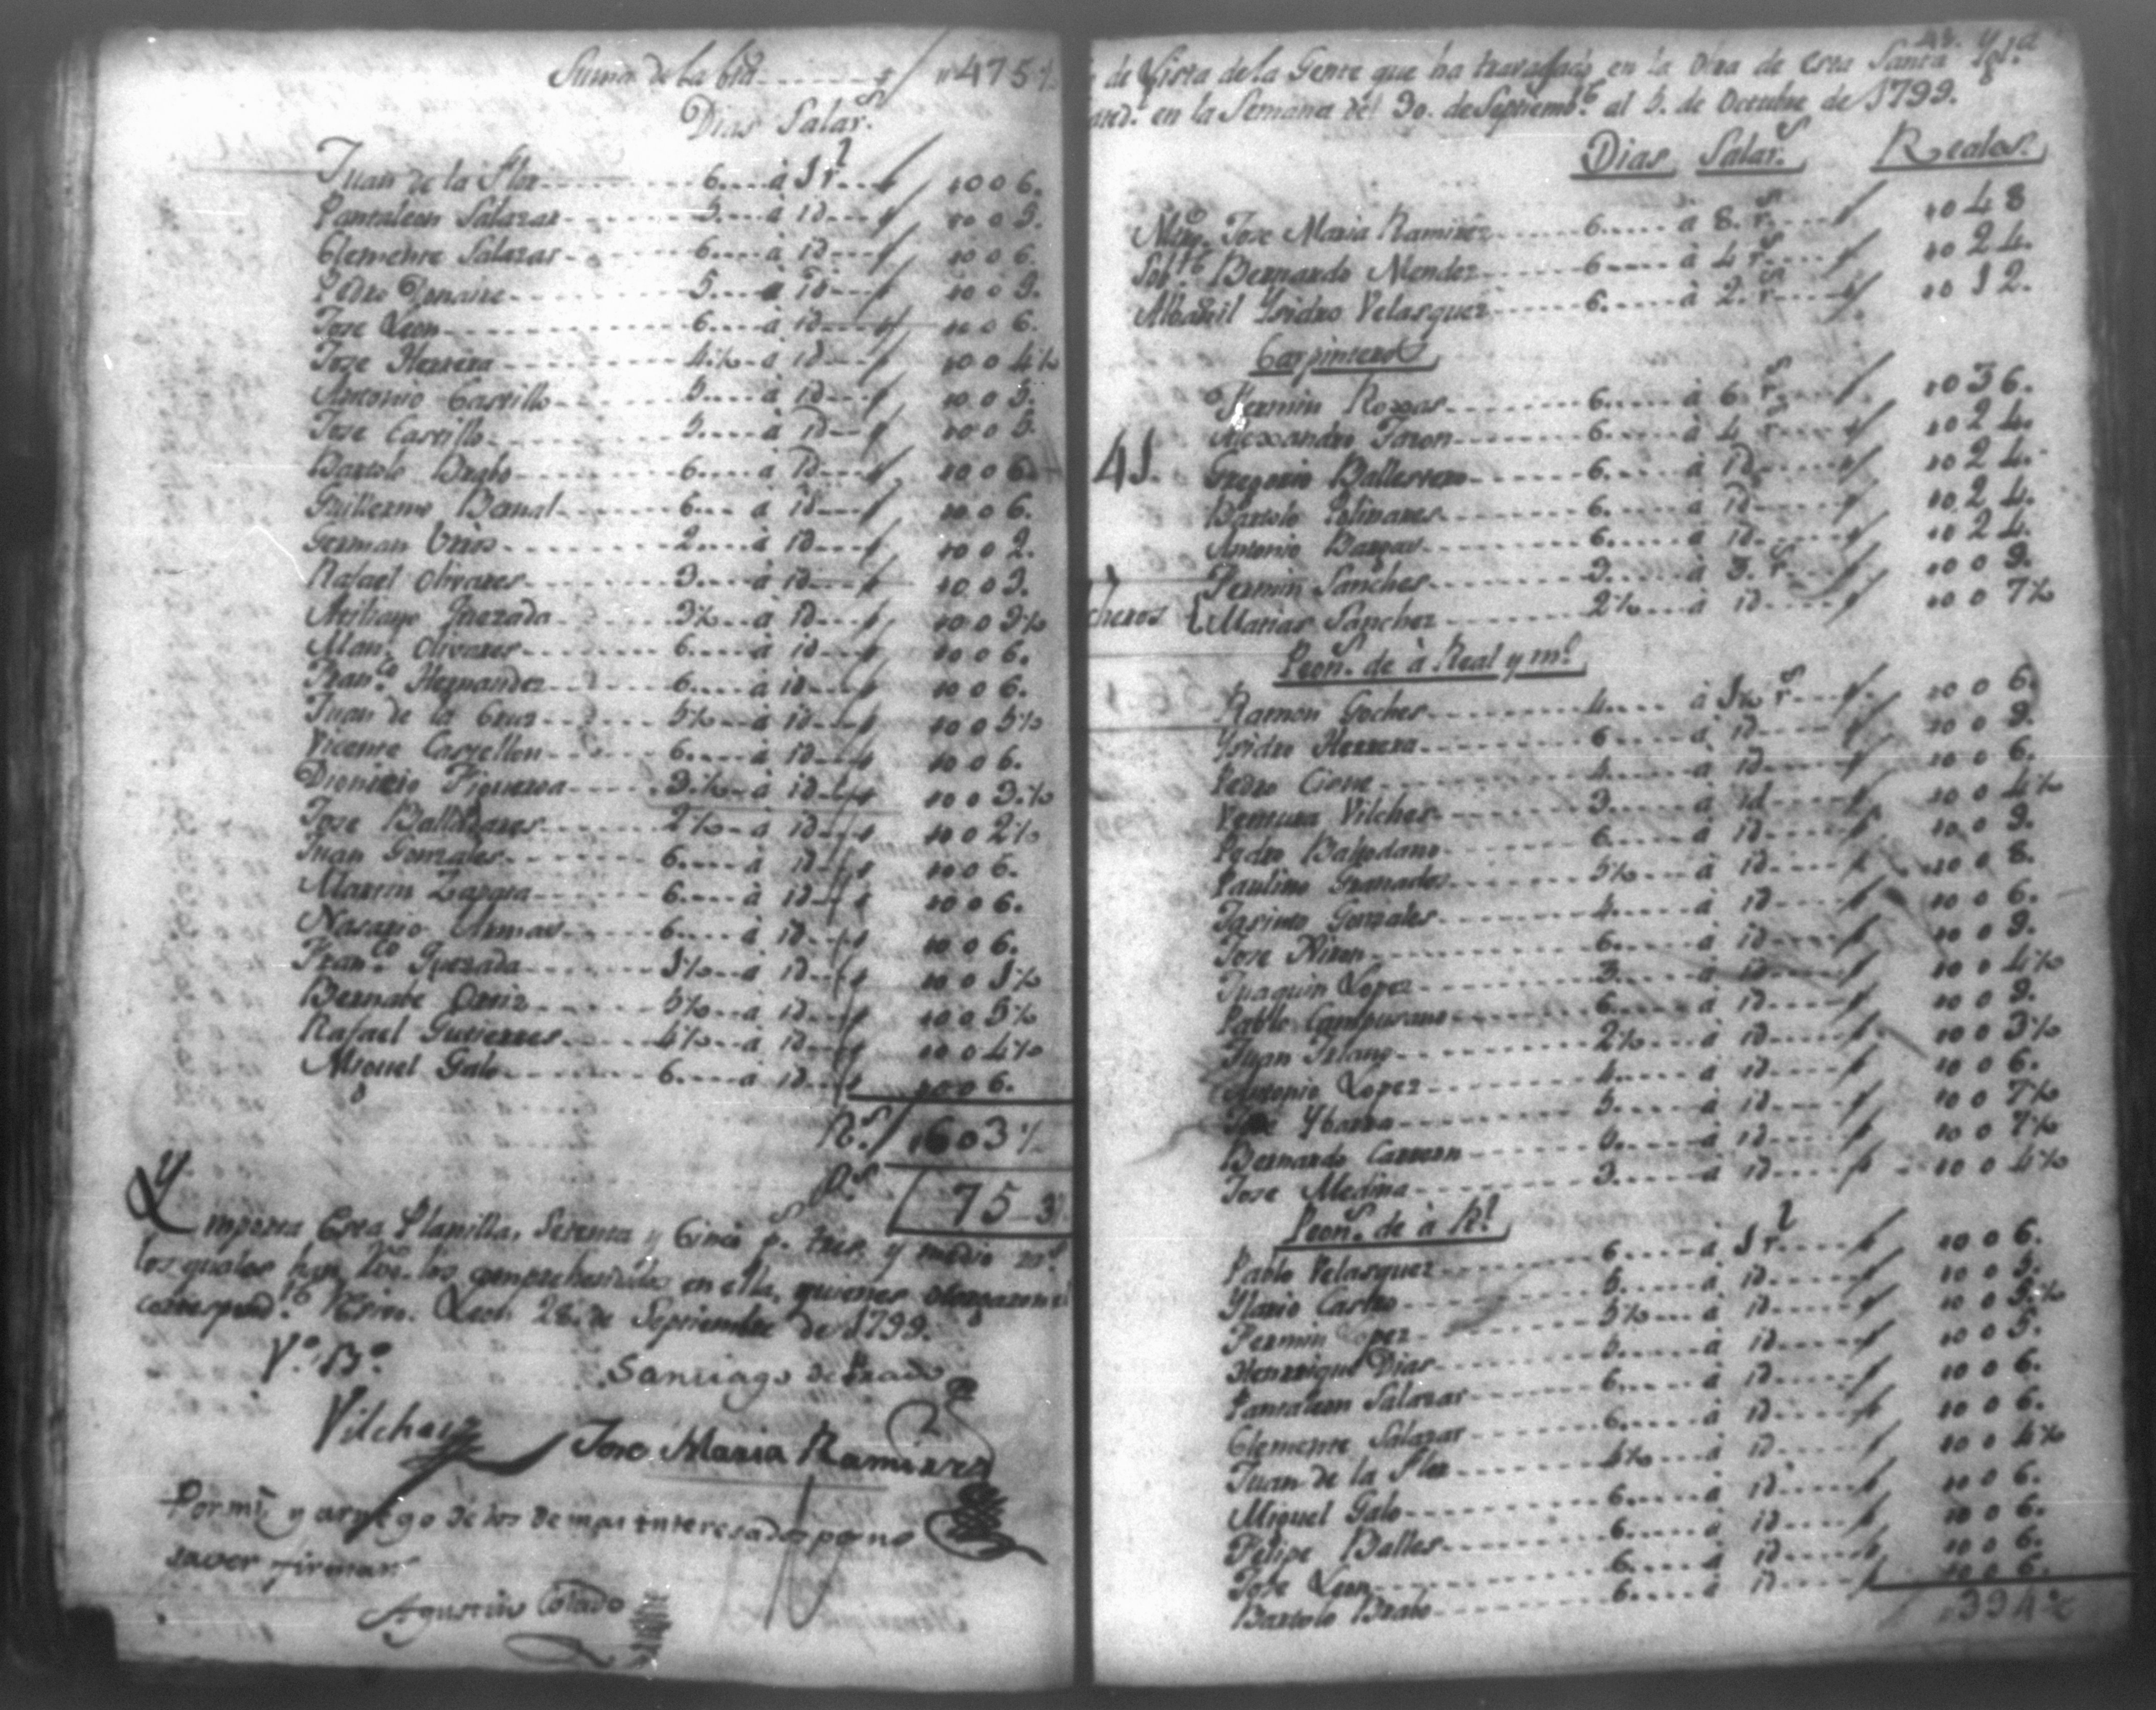 Suma de la bta ........ # / " 475 ½
Dias Salar.s
Juan de la Flor ........ 6 .... à 1 r.l ... # " 0 0 6.
Pantaleon Salazar ........ 5 .... à id ... # " 0 0 5.
Clemente Salazar ........ 6 .... à id ... # " 0 0 6.
Pedro ........ 5 .... à id ... # " 0 0 5.
Jose Leon ........ 6 .... à id ... # " 0 0 6.
Jose Herrera ........ 4 ½ .. à id ... # " 0 0 4 ½
Antonio Castillo ........ 5 .... à id ... # " 0 0 5.
Jose Castillo ........ 5 .... à id ... # " 0 0 5.
Bartolo Brabo ........ 6 .... à id ... # " 0 0 6.
Guillermo Bernal ........ 6 ... à id ... # " 0 0 6.
German ........ 2 .... à id ... # " 0 0 2.
Rafael Olivares ........ 3 .... à id ... # " 0 0 3.
Quezada ........ 3 ½ ... à id ... # " 0 0 3 ½
Man.l Olivares ........ 6 .... à id ... # " 0 0 6.
Fran.co Hernandez ........ 6 .... à id ... # " 0 0 6.
Juan de la Cruz ........ 5 ½ .. à id ... # " 0 0 5 ½
Vicente Castellon ........ 6 .... à id ... # " 0 0 6.
Dionicio Figueroa ........ 3 ½ .. à id ... # " 0 0 3 ½
Jose Balladares ........ 2 ½ .. à id ... # " 0 0 2 ½
Juan Gonzales ........ 6 .... à id ... # " 0 0 6.
Martin Zapata ........ 6 .... à id ... # " 0 0 6.
Nasario Armas ........ 6 .... à id ... # " 0 0 6.
Fran.co Quezada ........ 1 ½ ... à id ... # " 0 0 1 ½
Bernabe Ortiz ........ 5 ½ ... à id ... # " 0 0 5 ½
Rafael Gutierres ........ 4 ½ .. à id ... # " 0 0 4 ½
Miguel Galo ........ 6 .... à id ... # " 0 0 6.
R.s / " 603 ½
P.s 75 3
Ymporta Esta Planilla, Setenta y Cinco p.s tres y medio r.s
los quales han los comprehendidos en ella, quienes otorgaron el
correspond.te Rcivo. Leon 28. de Septiembre de 1799.
V.o B.o
Santiago de Prado
Vilchez
Jose Maria Ramires
Por mi, y arruego de los demas interesados por no
saver firmar
Agustin Collado
de Lista de la Gente que ha travajado en la Obra de esta Santa Ygl.a
en la Semana del 30. de Septiemb.e al 5. de Octubre de 1799.
Dias Salar.s Reales.
Mtro. Jose Maria Ramirez ........ 6 .... à 8. r.s ... # " 0 4 8
Sob.te Bernardo Mendez ........ 6 .... à 4 r.s ... # " 0 2 4.
Albañil Ysidro Velasquez ........ 6. ... à 2. r.s ... # " 0 1 2.
Carpinteros
Fermin Roxas ........ 6 .... à 6. r.s ... # " 0 3 6.
Alexandro Toron ........ 6. ... à 4 r.s ... # " 0 2 4.
41. Gregorio Ballestero ........ 6. ... à id ... # " 0 2 4.
Bartolo Polivares ........ 6. ... à id ... # " 0 2 4.
Antonio Bargas ........ 6. ... à id ... # " 0 2 4.
Fermin Sanches ........ 3. ... à 3. r.s ... # " 0 0 9.
cheros { Matias Sanchez ........ 2 ½ ... à id ... # " 0 0 7 ½
Peon.s de à Real y m.o
Ramon Goches ........ 4 .... à 1 ½ r.s ... # " 0 0 6.
Ysidro Herrera ........ 6 .... à id ... # " 0 0 9.
Pedro ........ 4 .... à id ... # " 0 0 6.
Ventura Vilches ........ 3 .... à id ... # " 0 0 4 ½
Pedro Baltodano ........ 6 .... à id ... # " 0 0 9.
Paulino Granados ........ 5 ½ ... à id ... # " 0 0 8.
Jasinto Gonzales ........ 4 .... à id ... # " 0 0 6.
Jose ........ 6 .... à id ... # " 0 0 9.
Juaquin Lopez ........ 3 .... à id ... # " 0 0 4 ½
Pablo Campusano ........ 6 .... à id ... # " 0 0 9.
Juan ........ 2 ½ ... à id ... # " 0 0 3 ½
Antonio Lopez ........ 4 .... à id ... # " 0 0 6.
Jose Ybarra ........ 5 .... à id ... # " 0 0 7 ½
Bernardo ........ à id ... # " 0 0 7 ½
Jose Medina ........ 3 .... à id ... # " 0 0 4 ½
Peon.s de à R.l
Pablo Velasquez ........ 6 .... à 1 r.l ... # " 0 0 6.
Ylario Castro ........ 5 .... à id ... # " 0 0 5.
Fermin Lopez ........ 5 ½ ... à id ... # " 0 0 5 ½
Henrrique Dias ........ 5 .... à id ... # " 0 0 5.
Pantaleon Salazar ........ 6 .... à id ... # " 0 0 6.
Clemente Salazar ........ 6 .... à id ... # " 0 0 6.
Juan de la Flor ........ 4 ½ ... à id ... # " 0 0 4 ½
Miguel Galo ........ 6 .... à id ... # " 0 0 6.
Felipe Balles ........ 6 .... à id ... # " 0 0 6.
Jose Leon ........ 6 .... à id ... # " 0 0 6.
Bartolo Brabo ........ 6 .... à id ... # " 0 0 6.
" 394 ½